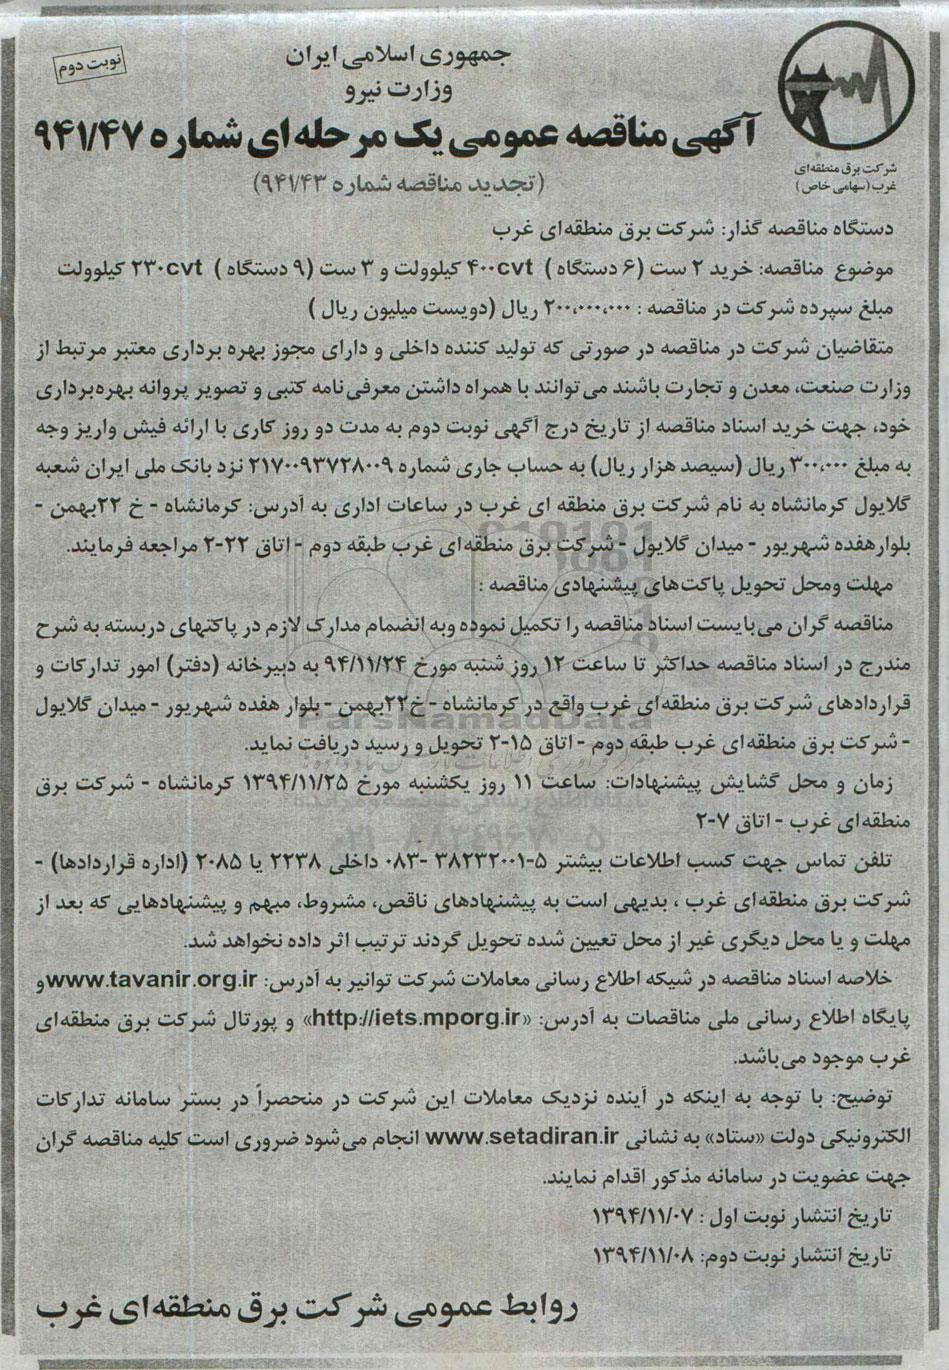 جمهوری اسلامی ایران
وزارت نیرو
نوبت دوم
آگهی مناقصه عمومی یک مرحله ای شماره ۹۴۱/۴۷
(تجدید مناقصه شماره ۹۴۱/۴۳)
شرکت برق منطقه‌ای
غرب (سهامی خاص)
دستگاه مناقصه گذار: شرکت برق منطقه‌ای غرب
موضوع مناقصه: خرید ۲ ست (۶ دستگاه) ۴۰۰cvt کیلوولت و ۳ ست (۹ دستگاه) ۲۳۰cvt کیلوولت
مبلغ سپرده شرکت در مناقصه : ۲۰۰،۰۰۰،۰۰۰ ریال (دویست میلیون ریال)
متقاضیان شرکت در مناقصه در صورتی که تولید کننده داخلی و دارای مجوز بهره برداری معتبر مرتبط از
وزارت صنعت، معدن و تجارت باشند می‌توانند با همراه داشتن معرفی‌نامه کتبی و تصویر پروانه بهره‌برداری
خود، جهت خرید اسناد مناقصه از تاریخ درج آگهی نوبت دوم به مدت دو روز کاری با ارائه فیش واریز وجه
به مبلغ ۳۰۰،۰۰۰ ریال (سیصد هزار ریال) به حساب جاری شماره ۲۱۷۰۰۹۳۷۲۸۰۰۹ نزد بانک ملی ایران شعبه
گلایول کرمانشاه به نام شرکت برق منطقه ای غرب در ساعات اداری به آدرس: کرمانشاه - خ ۲۲بهمن -
بلوارهفده شهریور - میدان گلایول - شرکت برق منطقه‌ای غرب طبقه دوم - اتاق ۲۲-۲ مراجعه فرمایند.
مهلت ومحل تحویل پاکت‌های پیشنهادی مناقصه :
مناقصه گران می‌بایست اسناد مناقصه را تکمیل نموده وبه انضمام مدارک لازم در پاکتهای دربسته به شرح
مندرج در اسناد مناقصه حداکثر تا ساعت ۱۲ روز شنبه مورخ ۹۴/۱۱/۲۴ به دبیرخانه (دفتر) امور تدارکات و
قراردادهای شرکت برق منطقه‌ای غرب واقع در کرمانشاه - خ۲۲بهمن - بلوار هفده شهریور - میدان گلایول
- شرکت برق منطقه‌ای غرب طبقه دوم - اتاق ۱۵-۲ تحویل و رسید دریافت نماید.
زمان و محل گشایش پیشنهادات: ساعت ۱۱ روز یکشنبه مورخ ۱۳۹۴/۱۱/۲۵ کرمانشاه - شرکت برق
منطقه‌ای غرب - اتاق ۷-۲
تلفن تماس جهت کسب اطلاعات بیشتر ۵-۳۸۲۳۲۰۰۱ -۰۸۳ داخلی ۲۲۳۸ یا ۲۰۸۵ (اداره قراردادها) -
شرکت برق منطقه‌ای غرب ، بدیهی است به پیشنهادهای ناقص، مشروط، مبهم و پیشنهادهایی که بعد از
مهلت و یا محل دیگری غیر از محل تعیین شده تحویل گردند ترتیب اثر داده نخواهد شد.
خلاصه اسناد مناقصه در شبکه اطلاع رسانی معاملات شرکت توانیر به آدرس: www.tavanir.org.ir و
پایگاه اطلاع رسانی ملی مناقصات به آدرس: «http://iets.mporg.ir» و پورتال شرکت برق منطقه‌ای
غرب موجود می‌باشد.
توضیح: با توجه به اینکه در آینده نزدیک معاملات این شرکت در منحصراً در بستر سامانه تدارکات
الکترونیکی دولت «ستاد» به نشانی www.setadiran.ir انجام می‌شود ضروری است کلیه مناقصه گران
جهت عضویت در سامانه مذکور اقدام نمایند.
تاریخ انتشار نوبت اول : ۱۳۹۴/۱۱/۰۷
تاریخ انتشار نوبت دوم: ۱۳۹۴/۱۱/۰۸
روابط عمومی شرکت برق منطقه‌ای غرب
ParsNamadData